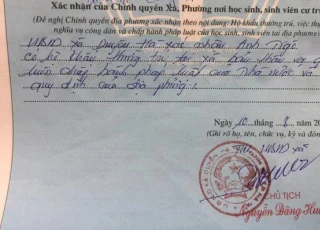 Xác nhận của Chính quyền Xã, Phường nơi học sinh, sinh viên cư tr
(Đề nghị Chính quyền địa phương xác nhận theo nội dung: Hộ khẩu thường trú, việc th
nghĩa vụ công dân và chấp hành pháp luật của học sinh, sinh viên tại địa phương
UBND xã Duyên Hà xác nhận anh Ngô
có hộ khẩu thường trú tại xã
luôn chấp hành pháp luật của Nhà nước và
quy định của địa phương
Ngày 10 8 20
(Ghi rõ họ, tên, chức vụ, ký và đón
UBND xã
CHỦ TỊCH
Nguyễn Đăng Huấ